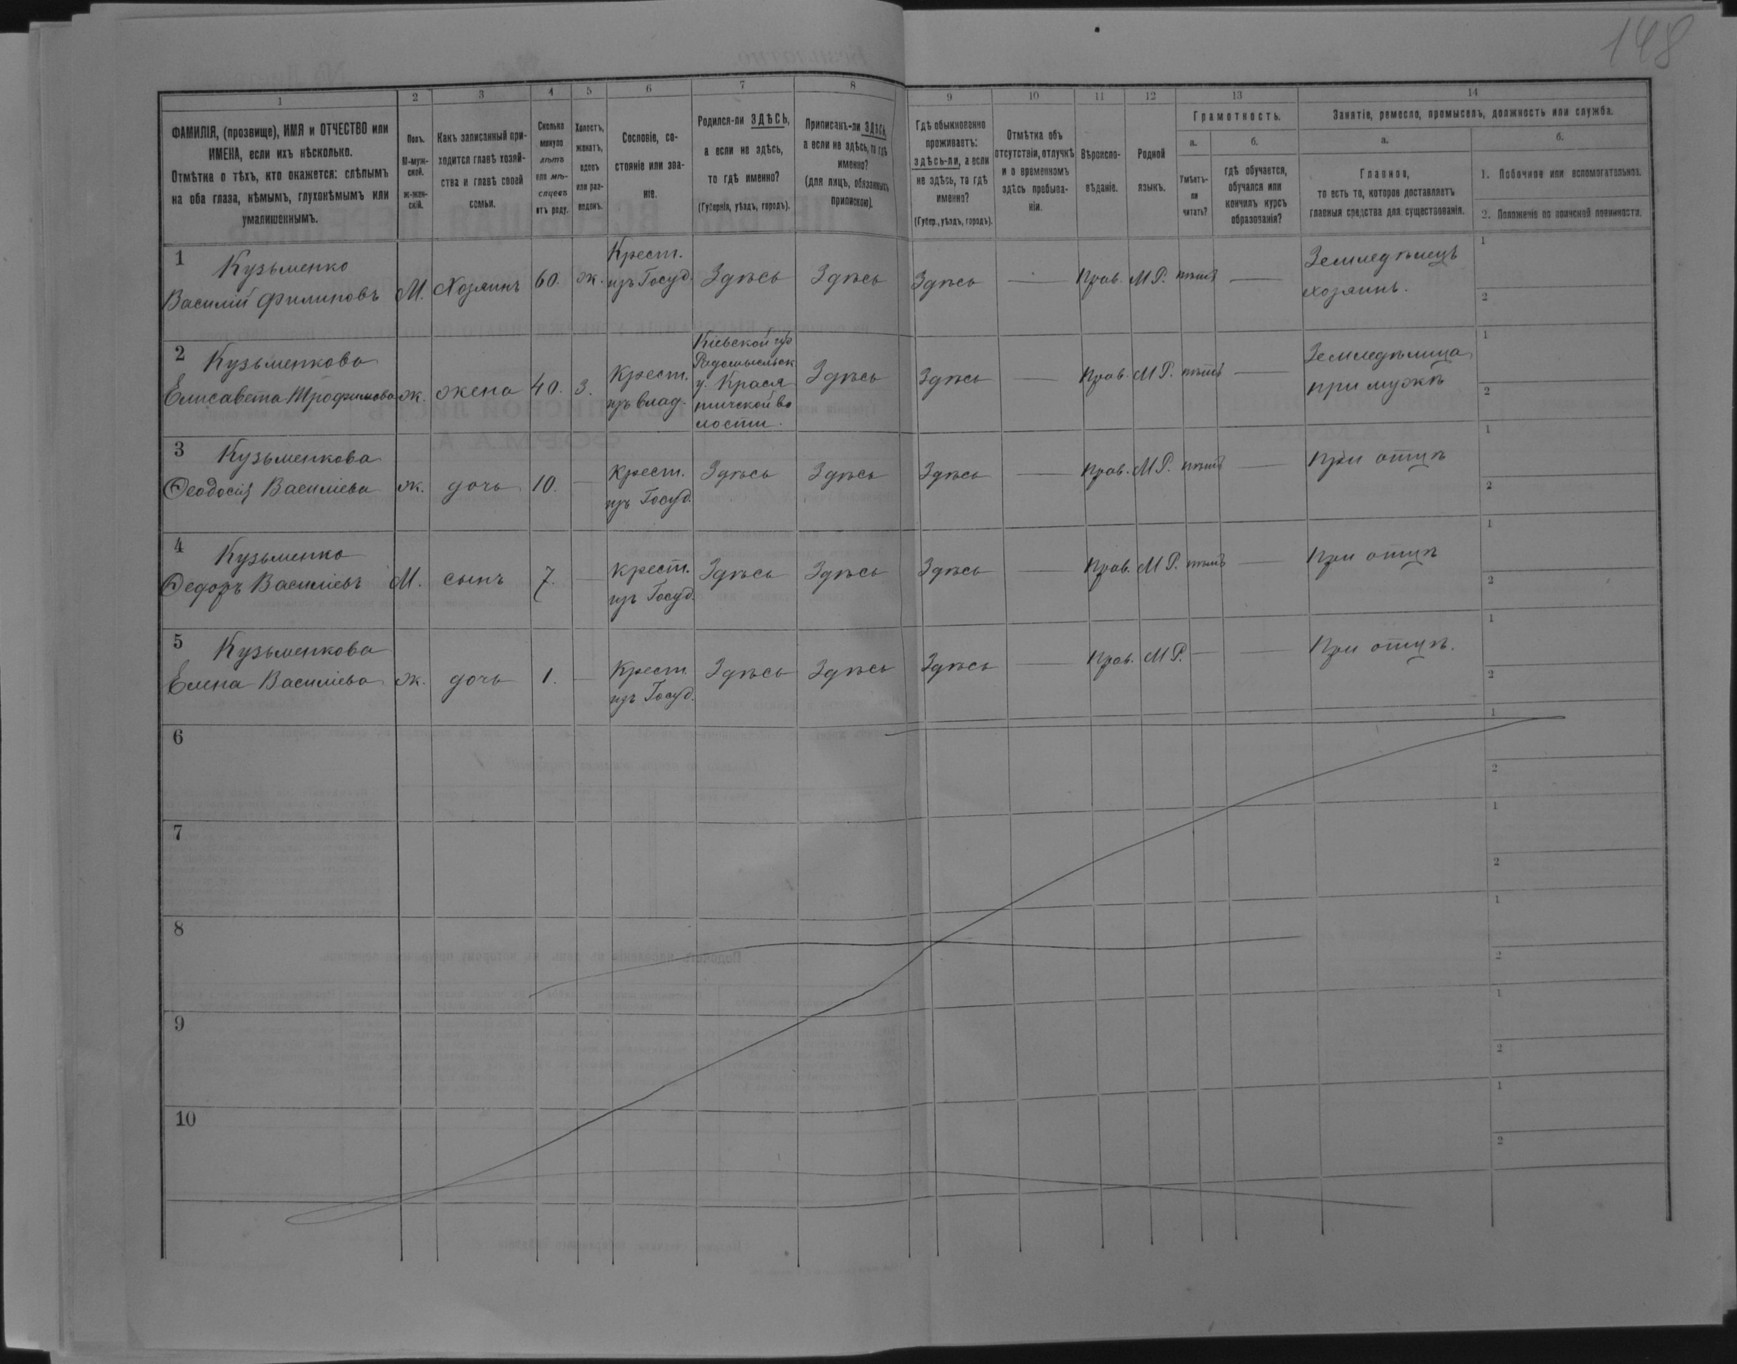 148
1 2 3 4 5 6 7 8 9 10 11 12 13 14
ФАМИЛІЯ, (прозвище), ИМЯ и ОТЧЕСТВО или
ИМЕНА, если ихъ нѣсколько.
Отмѣтка о тѣхъ, кто окажется: слѣпымъ
на оба глаза, нѣмымъ, глухонѣмымъ или
умалишеннымъ.
Полъ.
М-муж-
ской.
Ж-жен-
скій.
Какъ записанный при-
ходится главѣ хозяй-
ства и главѣ своей
семьи.
Сколько
минуло
лѣтъ
или мѣ-
сяцевъ
отъ роду.
Холостъ,
женатъ,
вдовъ
или раз-
веденъ.
Сословіе, со-
стояніе или зва-
ніе.
Родился-ли ЗДѢСЬ,
а если не здѣсь,
то гдѣ именно?
(Губернія, уѣздъ, городъ).
Приписанъ-ли ЗДѢСЬ,
а если не здѣсь, то гдѣ
именно?
(для лицъ, обязанныхъ
припискою).
Гдѣ обыкновенно
проживаетъ:
здѣсь-ли, а если
не здѣсь, то гдѣ
именно?
(Губер., уѣздъ, городъ).
Отмѣтка объ
отсутствіи, отлучкѣ
и о временномъ
здѣсь пребыва-
ніи.
Вѣроиспо-
вѣданіе.
Родной
языкъ.
Грамотность.
а.
Умѣетъ-
ли
читать?
б.
гдѣ обучается,
обучался или
кончилъ курсъ
образованія?
Занятіе, ремесло, промыселъ, должность или служба.
а.
Главное,
то есть то, которое доставляетъ
главныя средства для существованія.
б.
1. Побочное или вспомогательное.
2. Положеніе по воинской повинности.
1 Кузьменко
Василій Филиповъ М. Хозяинъ 60. ж. Крест.
изъ Госуд. Здѣсь Здѣсь Здѣсь — Прав. М.Р. нѣтъ — Земледѣлецъ
хозяинъ.
1
2
2 Кузьменкова
Елисавета Трофимова ж. жена 40. з. Крест.
изъ влад. Кіевской губ
Радомысльск
у. Крася
тичской во
лости. Здѣсь Здѣсь — Прав. М.Р. нѣтъ — Земледѣлица
при мужѣ
1
2
3 Кузьменкова
Ѳеодосія Василіева ж. дочь 10. — Крест.
изъ Госуд. Здѣсь Здѣсь Здѣсь — Прав. М.Р. нѣтъ — При отцѣ
1
2
4 Кузьменко
Ѳедоръ Василіевъ М. сынъ 7. — Крест.
изъ Госуд. Здѣсь Здѣсь Здѣсь — Прав. М.Р. нѣтъ — При отцѣ
1
2
5 Кузьменкова
Елена Василіева ж. дочь 1. — Крест.
изъ Госуд. Здѣсь Здѣсь Здѣсь — Прав. М.Р. — — При отцѣ.
1
2
6
1
2
7
1
2
8
1
2
9
1
2
10
1
2